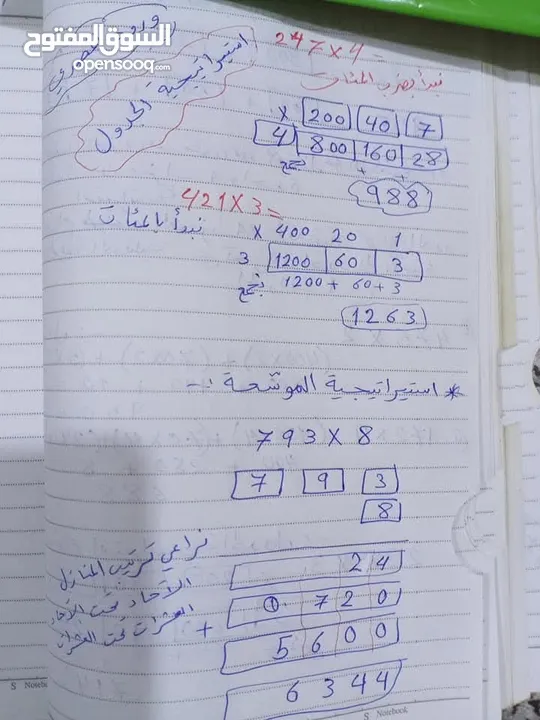 السوق المفتوح
opensooq.com
استيراتيجية الجدول
247 × 4 =
نبدأ بضرب المئات
× 200 40 7
4 800 160 28
+ +
نجمع
988
421 × 3 =
نبدأ بالمئات
× 400 20 1
3 1200 60 3
نجمع 1200 + 60 + 3
1263
* استيراتيجية الموسّعة :-
793 × 8
7 9 3
8
نراعي ترتيب المنازل
الآحاد تحت الآحاد
العشرات تحت العشرات
24
① 720
+ 5600
6344
S Notebook
Notebook